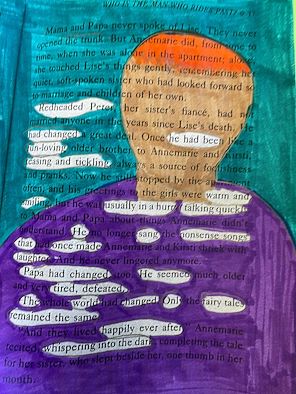 WHO IS THE MAN WHO RIDES PAST?
Mama and Papa never spoke of Lise. They never
opened the trunk. But Annemarie did, from time to
time, when she was alone in the apartment; alone,
she touched Lise's things gently, remembering her
quiet, soft-spoken sister who had looked forward so
to marriage and children of her own.
Redheaded Peter, her sister's fiancé, had not
married anyone in the years since Lise's death. He
had changed a great deal. Once he had been like a
fun-loving older brother to Annemarie and Kirsti,
teasing and tickling, always a source of foolishness
and pranks. Now he still stopped by the apartment
often, and his greetings to the girls were warm and
smiling, but he was usually in a hurry, talking quickly
to Mama and Papa about things Annemarie didn't
understand. He no longer sang the nonsense songs
that had once made Annemarie and Kirsti shriek with
laughter. And he never lingered anymore.
Papa had changed, too. He seemed much older
and very tired, defeated.
The whole world had changed. Only the fairy tales
remained the same.
"And they lived happily ever after," Annemarie
recited, whispering into the dark, completing the tale
for her sister, who slept beside her, one thumb in her
month.